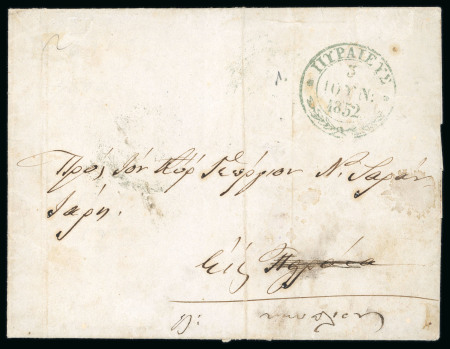 ΠΥΡΑΙΕΥΣ
3
ΙΟΥΝ.
1852
Πρὸς τὸν Κὺρ Γεώργιον Ν. Σαράν
τάρη.
Εἰς